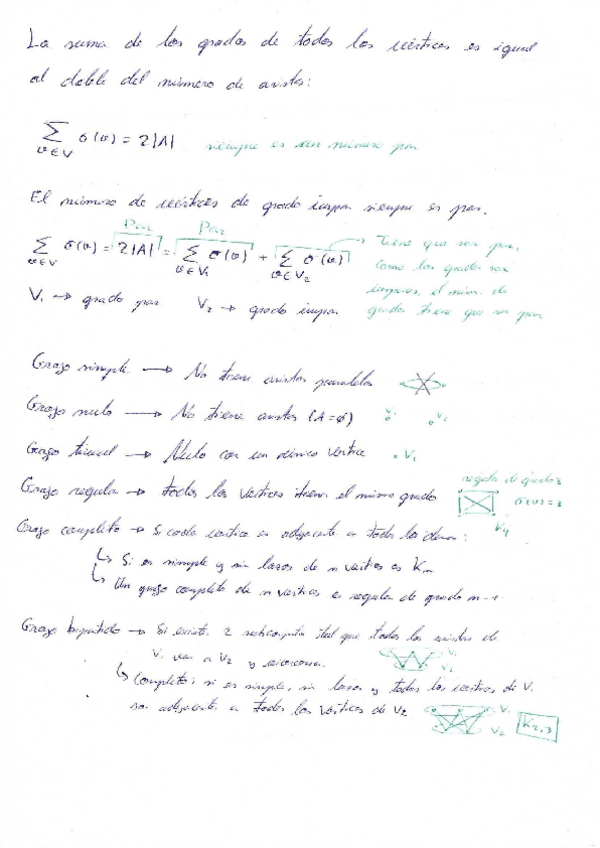 La suma de los grados de todos los vértices es igual
al doble del número de aristas:
∑ σ(v) = 2|A| siempre es un número par
v∈V
El número de vértices de grado impar siempre es par.
Par Par
∑ σ(v) = 2|A| = ∑ σ(v) + ∑ σ(v) → Tiene que ser par,
v∈V v∈V₁ v∈V₂ como los grados son
impares, el núm. de
V₁ → grado par V₂ → grado impar grados tiene que ser par
Grafo simple → No tiene aristas paralelas
Grafo nulo → No tiene aristas (A=ϕ) V₁ V₂
Grafo trivial → Nulo con un único vértice .V₁
regular de grado 3
Grafo regular → todos los vértices tienen el mismo grado σ(v)=3
K₄
Grafo completo → Si cada vértice es adyacente a todos los demás:
↳ Si es simple y sin lazos de n vértices es Kn
↳ Un grafo completo de n vértices es regular de grado n-1
Grafo bipartido → Si existe 2 subconjuntos tal que todas las aristas de
V₁ van a V₂ y viceversa. V₁
V₂
↳ Completo: si es simple, sin lazos y todos los vértices de V₁
son adyacentes a todos los vértices de V₂ V₁
V₂ K₂,₃